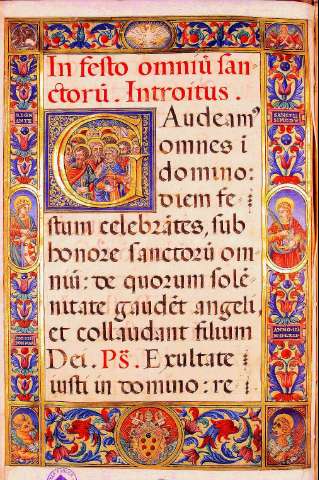 In festo omniū san-
ctorū. Introitus.
GAudeam⁹
omnes i
domino:
diem fe-
stum celebrātes, sub
honore sanctorū om
niū: de quorum solē
nitate gaudēt angeli,
et collaudant filium
Dei. Ps̄. Exultate
iusti in domino: re